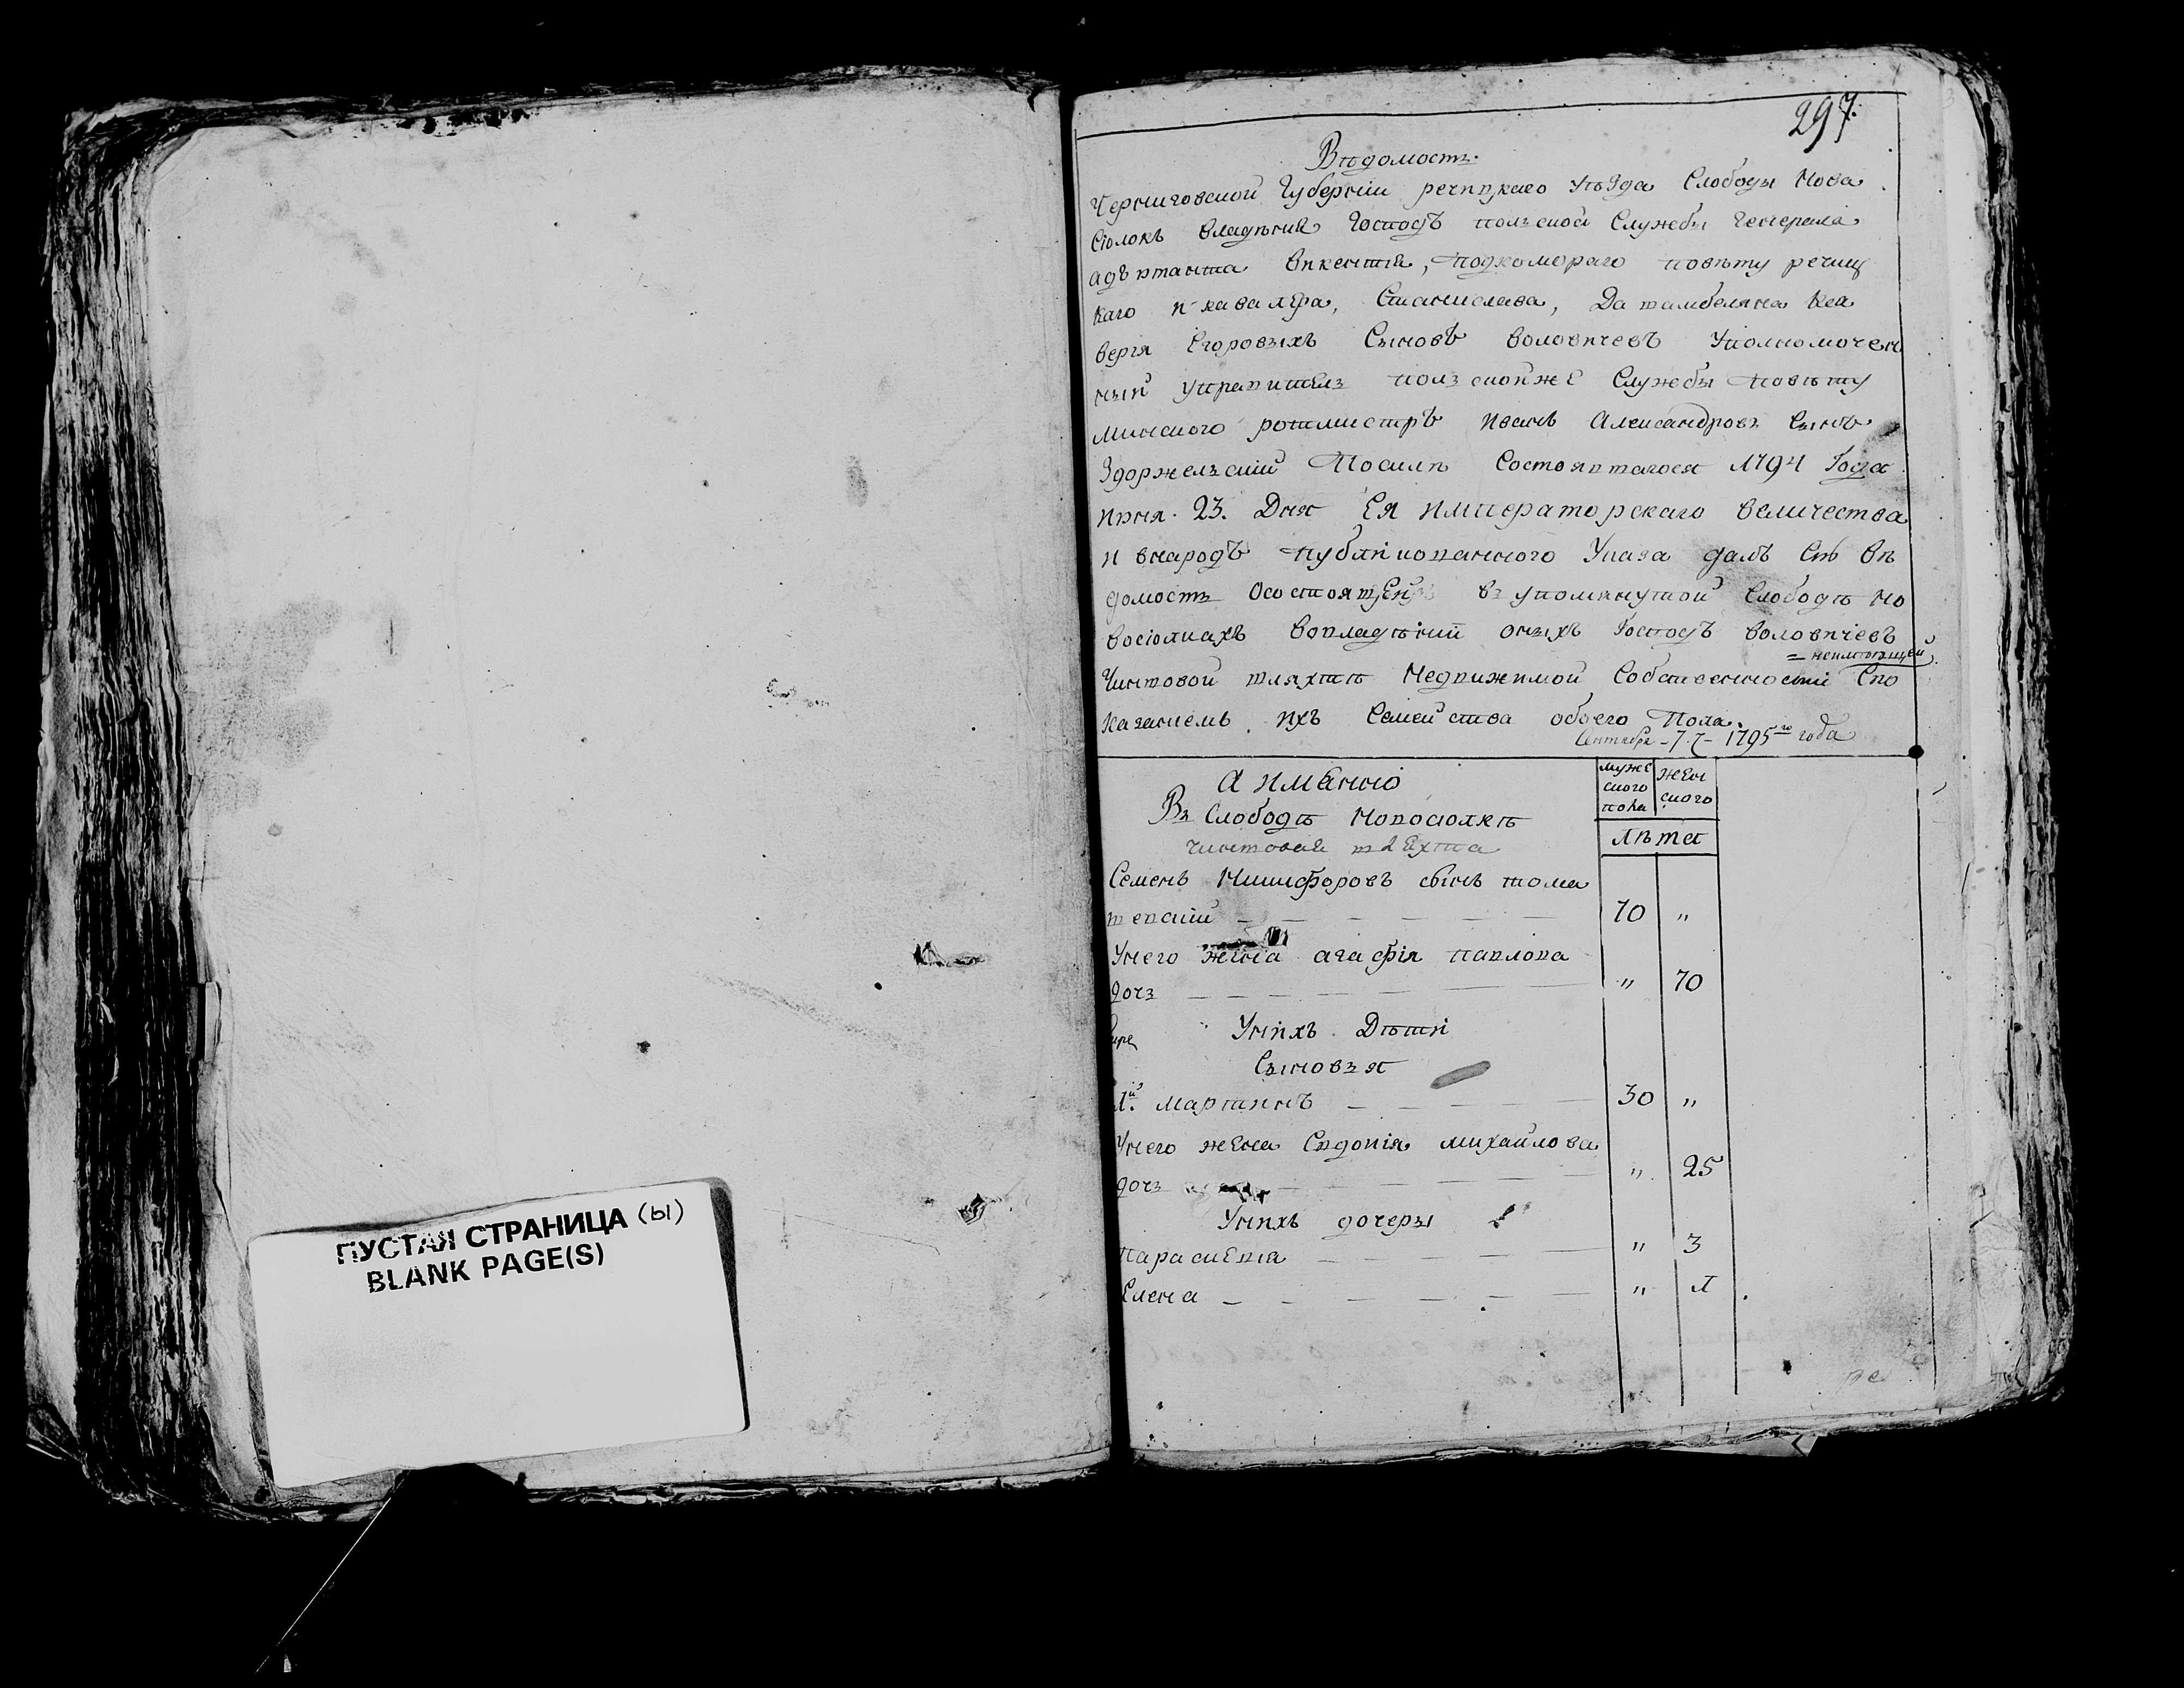 ПУСТАЯ СТРАНИЦА (Ы)
BLANK PAGE(S)
297.
Вѣдомость.
Черниговской Губерніи речицкаго уѣзда Слободы Нова
сіолокъ владѣнія Господъ польской Службы Генерала
адъютанта викентія, подкомораго повѣту речиц
каго и кавалера, Станислава, Да шамбеляна
верія Егоровыхъ Сыновъ воловичевъ Уполномочен
ный управитель польскойже Службы повѣту
минского ротмистръ иванъ Александровъ Сынъ
Посилѣ Состоявшагося 1794 Года
июня 23. Дня Ея императорскаго величества
и внародъ публикованного Указа далъ Сію вѣ
домость Осостоящей въ упомянутой Слободѣ Но
восіолкахъ вовладѣніи оныхъ Господъ воловичевъ
= неимѣющей
Чиншовой шляхтѣ Недвижимой Собственности Спо
казаніемъ ихъ Семейства обоего Пола.
Сентября - 7. 1795го года
а имянно
Въ Слободѣ Новосіолкѣ
чиншовая шляхта
муже
ского
пола
жен
ского
лѣта
Семенъ Никифоровъ сынъ тома
шевский 70 "
Унего жена агафія павлова
дочь " 70
Унихъ Дѣти
Сыновья
1й. мартинъ 30 "
Унего жена Євдокія михайлова
дочь " 25
Унихъ дочеры
параскевія " 3
Елена " 1